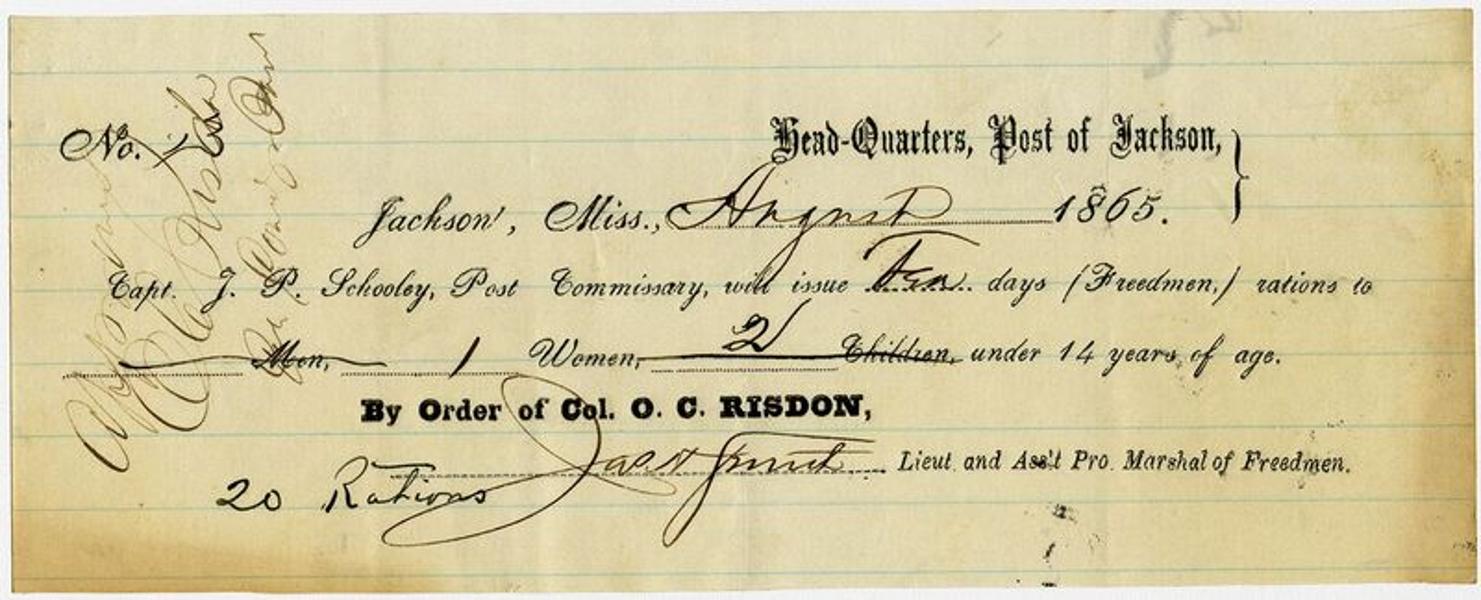 Head-Quarters, Post of Jackson,
No. 1
Jackson, Miss., August 1865.
Capt. J. P. Schooley, Post Commissary, will issue Ten days (Freedmen,) rations to
Men, 1 Women, 2 Children, under 14 years of age.
By Order of Col. O. C. RISDON,
Lieut. and Ass't Pro. Marshal of Freedmen.
20 Rations
O. C. Risdon